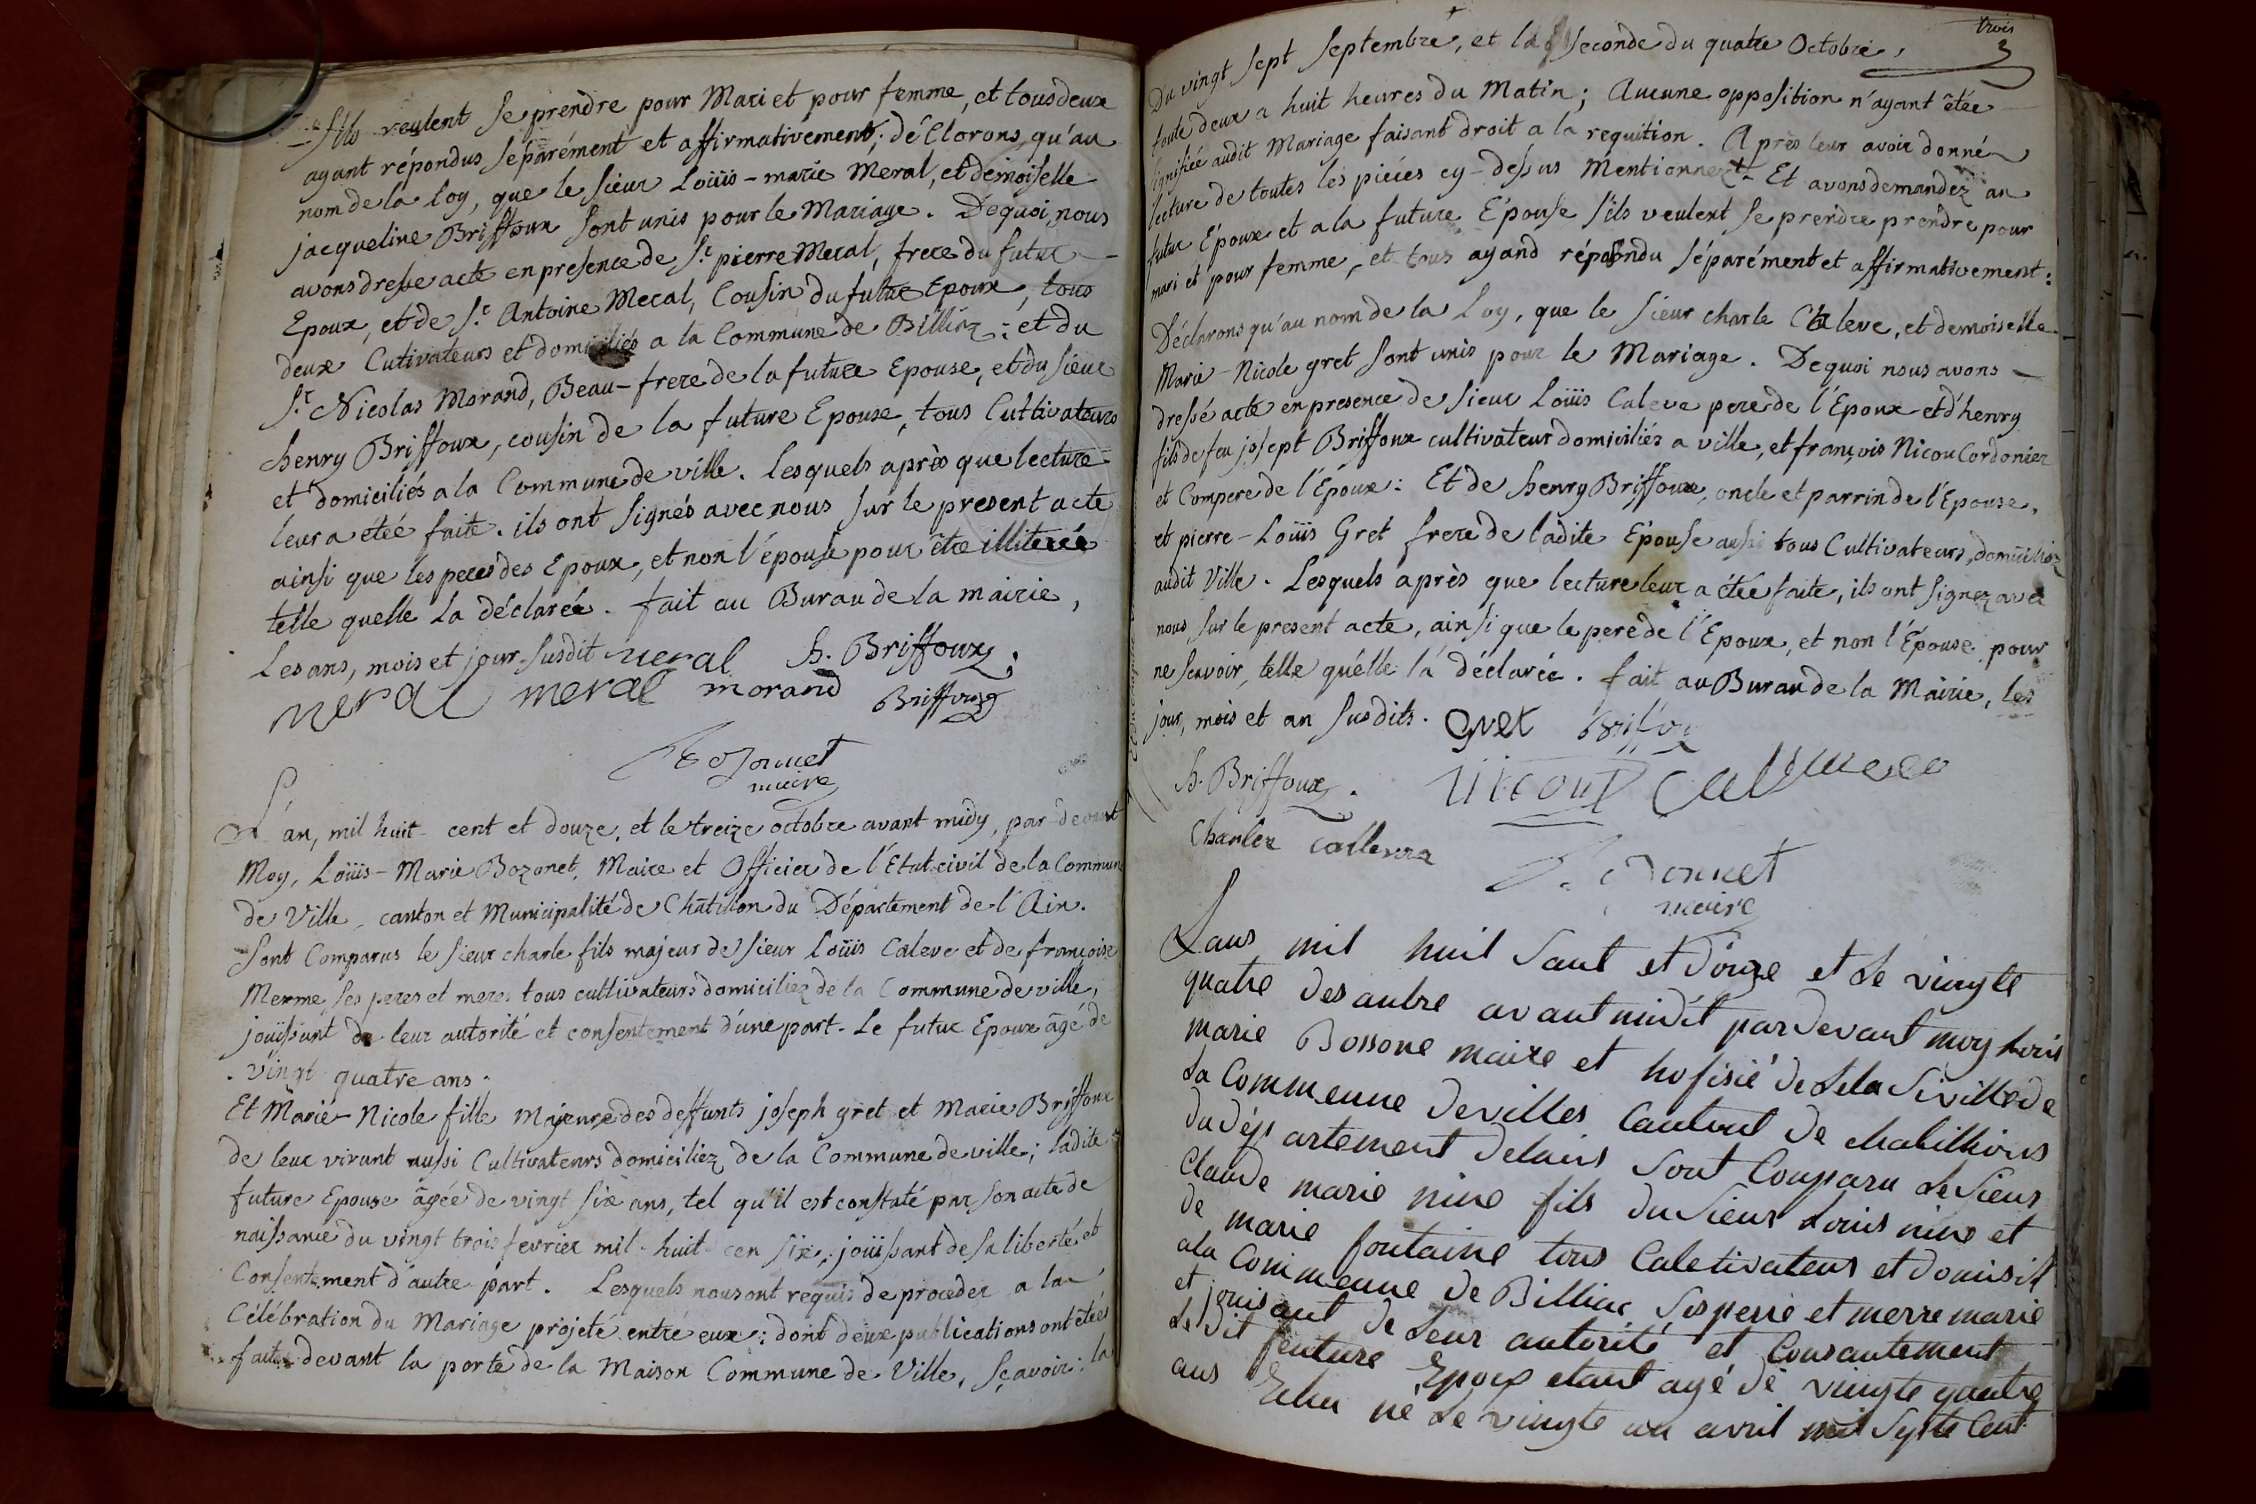 s'ils veulent se prendre pour Mari et pour femme, et tous deux
ayant répondus séparément et affirmativement; déClorons, qu'au
nom de la Loy, que le sieur Loüis-marie Meral, et demoiselle
jacqueline Briffoux sont unis pour le Mariage. De quoi, nous
avons dressé acte en presence de Sr. pierre Meral, frere du futur
Epoux, et de Sr. Antoine Meral, Cousin du futur Epoux, tous
deux Cutivateurs et domiciliés a la Commune de Billiaz; et du
Sr. Nicolas Morand, Beau-frere de la future Epouse, et du sieur
henry Briffoux, cousin de la future Epouse, tous Cultivateurs
et domiciliés a la Commune de ville. Lesquels après que lecture
leur a etée faite. ils ont signés avec nous sur le present acte
ainsi que les peres des Epoux, et non l'épouse pour être illiterée
telle quelle la déclarée. fait au Burau de la mairie,
Les ans, mois et jour susdit meral h. Briffoux.
meral meral morand Briffoux
Bozonnet
maire
L'an, mil huit-cent et douze, et le treize octobre avant midy, par devant
Moy, Loüis-Marie Bozonet, Maire et Officier de l'Etat-civil de la Commune
de Ville, canton et Municipalité de Châtillon du Département de l'Ain.
Sont Comparus le sieur charle fils majeur de sieur Loüis Caleve et de françoise
Merme, ses peres et meres tous cultivateurs domiciliez de la Commune de ville,
joüissant de leur autorité et consentement d'une part. Le futur Epoux âgé de
vingt quatre ans.
Et Marie-Nicole fille Majeure des deffunts joseph gret et Marie Briffoux
de leur vivant aussi Cultivateurs domiciliez de la Commune de ville; ladite
future Epouse âgée de vingt six ans, tel qu'il est constaté par son acte de
naissance du vingt trois fevrier mil-huit-cen six; joüissant de sa liberté et
Consentement d'autre part. Lesquels nous ont requis de proceder a la
Célébration du Mariage projeté entre eux: dont deux publications ont étées
faites devant la porte de la Maison Commune de Ville, sçavoir: la
trois
3
Du vingt sept septembre, et la seconde du quatre Octobre,
toute deux a huit heures du Matin; Aucune opposition n'ayant êtée
signifiée audit Mariage faisant droit a la requition. Après leur avoir donné
lecture de toutes les piéces cy-dessus Mentionnez. Et avons demandez au
futur Époux et a la future Épouse s'ils veulent se prendre prendre pour
mari et pour femme, et tous ayand répondu séparément et affirmativement:
Déclarons qu'au nom de la Loy, que le sieur charle Caleve, et demoiselle
Marie-Nicole gret sont unis pour le Mariage. De quoi nous avons
dressé acte en presence de sieur Loüis Caleve pere de l'Epoux et d'henry
fils de feu josept Briffoux cultivateur domiciliés a ville, et françois Nicou Cordonier
et Compere de l'Epoux: Et de henry Briffoux, oncle et parrin de l'Epouse,
et pierre-Loüis Gret frere de ladite Epouse aussi tous Cultivateurs, domiciliez
audit Ville. Lesquels après que lecture leur a étée faite, ils ont signez avec
nous, sur le present acte, ainsi que le pere de l'Epoux, et non l'Épouse pour
ne scavoir, telle quélle lá déclarée. fait au Burau de la Mairie, les
jour, mois et an susdits. gret
h. Briffoux.
Bozonnet
maire
Lans mil huit sant et douze et Le vingte
quatre desanbre avant midit par devant moy Louis
marie Bossone maire et hofisié de Léla Siville de
La Commenne de villes Cantont de chatilhions
du département delains sont Comparu Le sieur
Claude marie nine fils du sieur Louis nine et
de marie fontaine tous Caletivateurs et domisil
ala Commenne de Billiac sesperre et merre marie
et jouisant de Leur autorité et Consantement
Le dit feuture Epoux etant agé de vingte quatre
ans né Le vingte un avril mil septe Cent